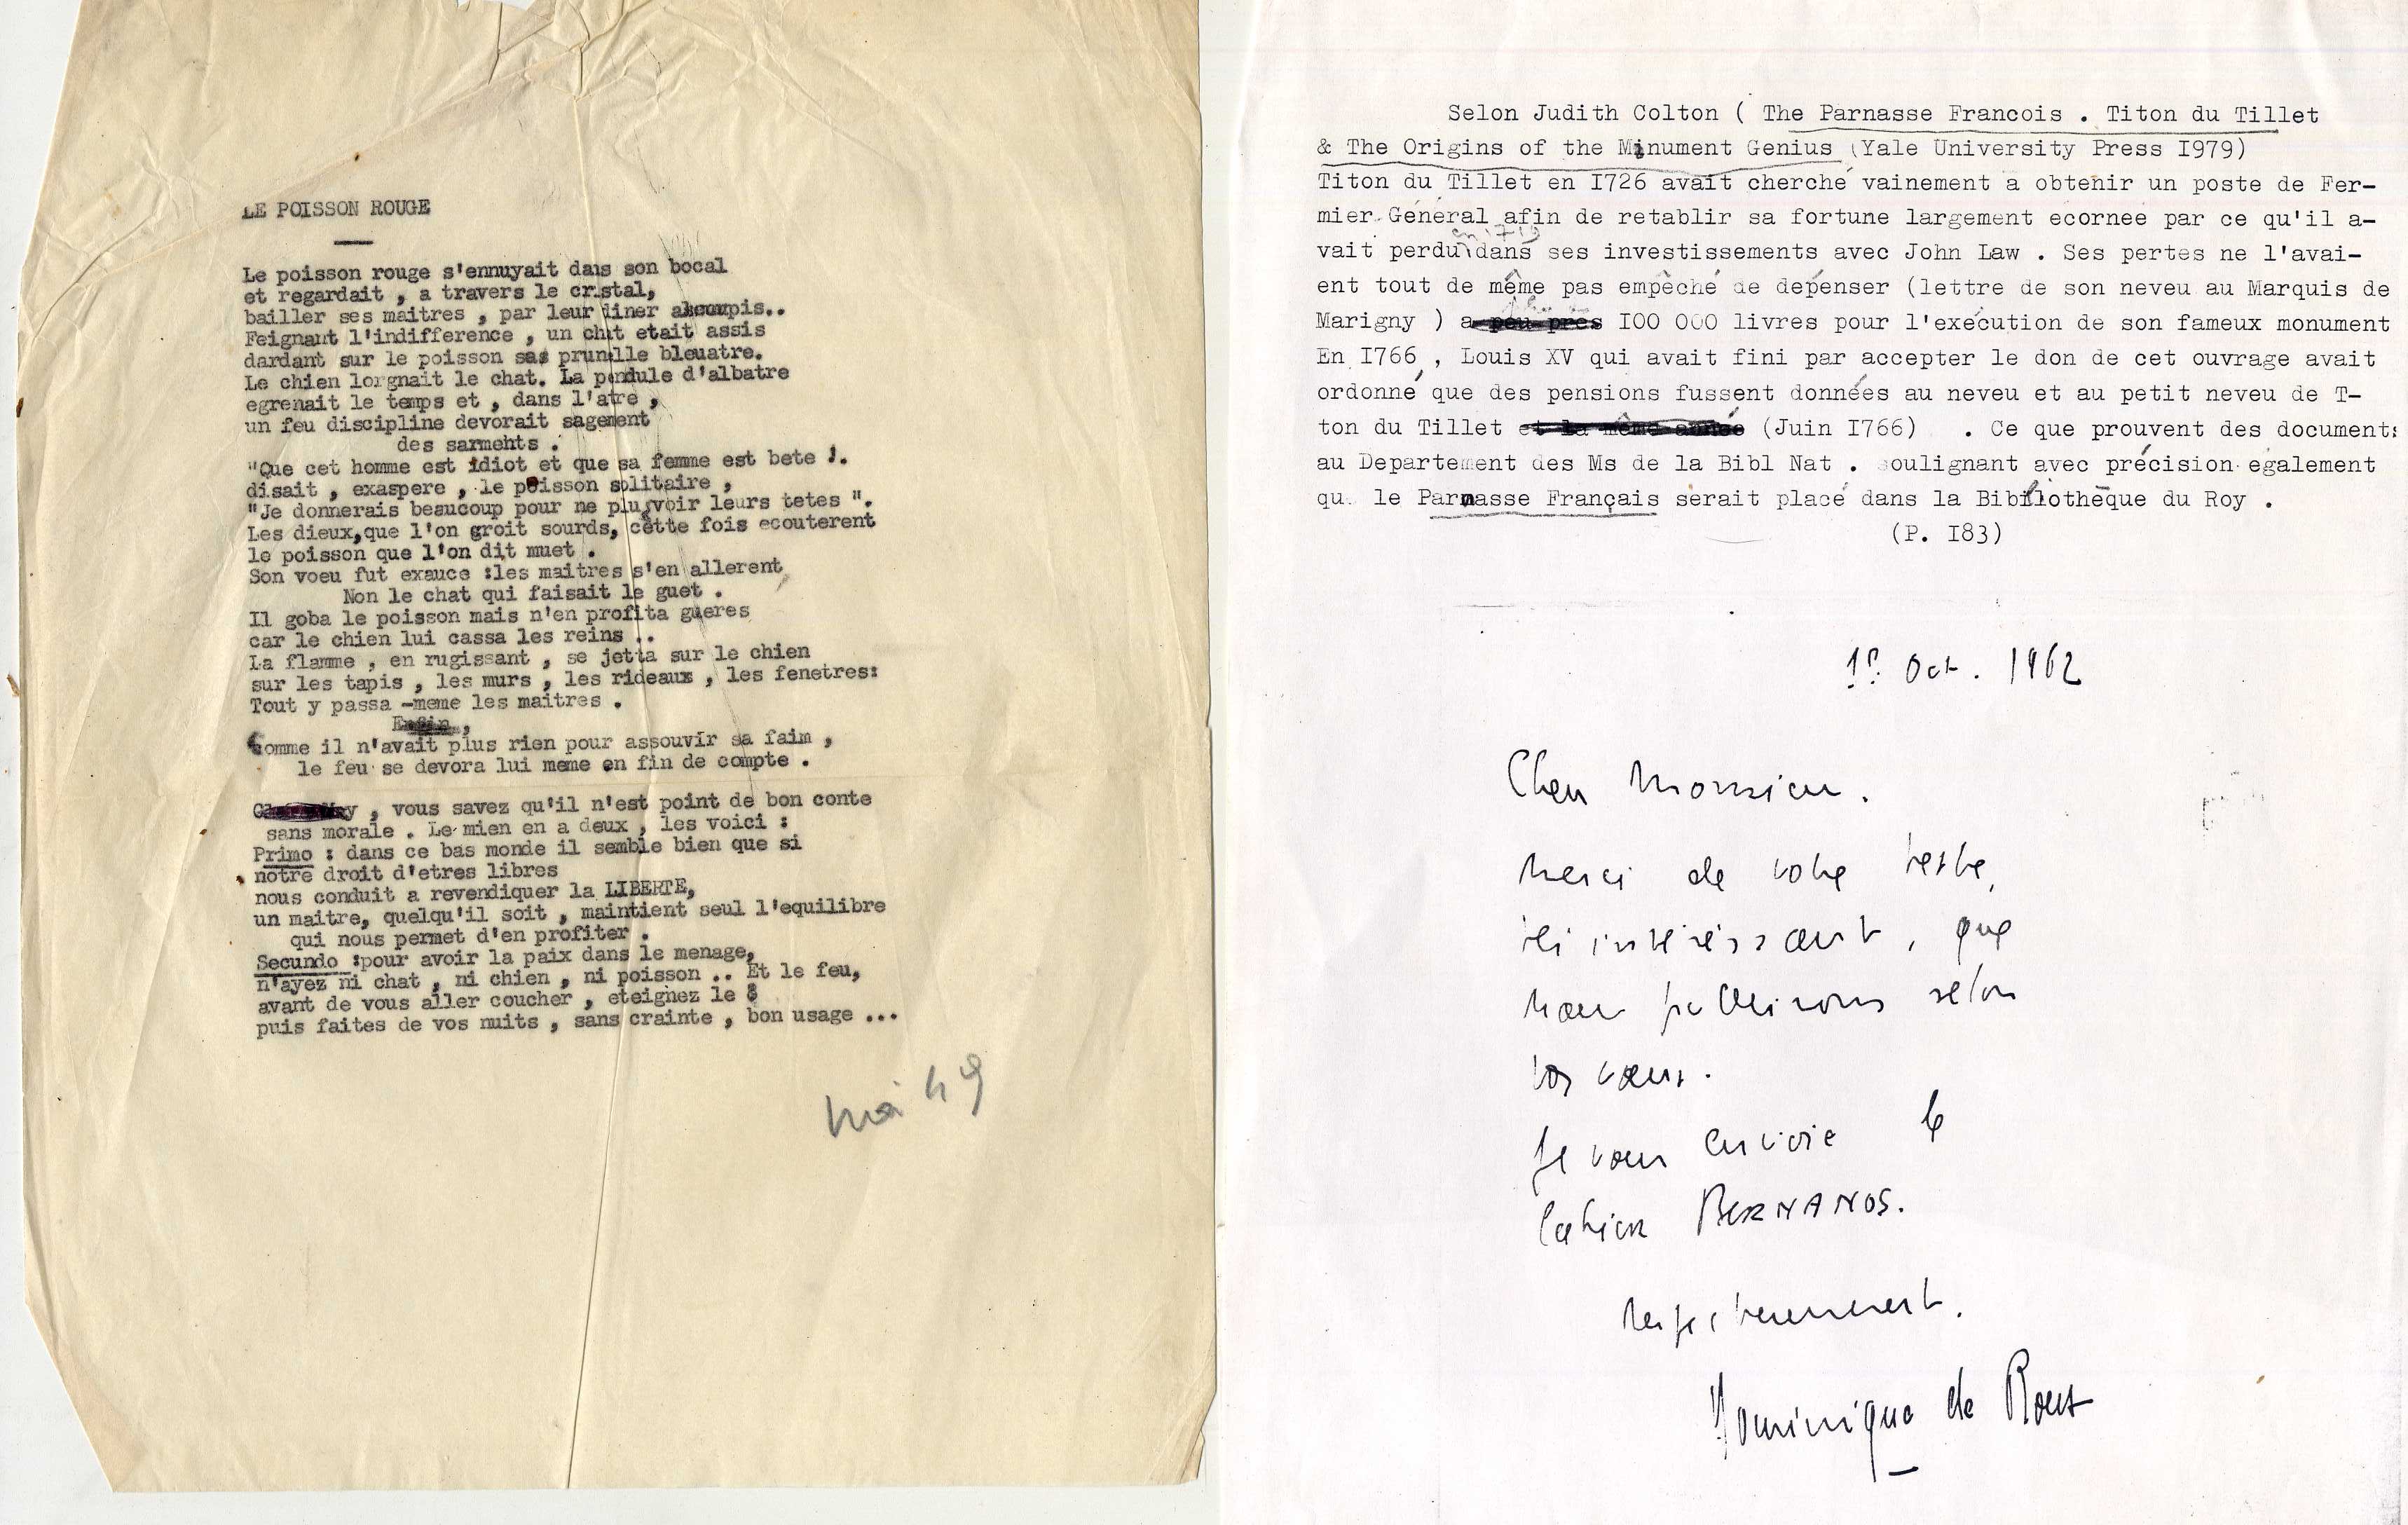 LE POISSON ROUGE
Le poisson rouge s'ennuyait dans son bocal
et regardait , a travers le cristal,
bailler ses maitres , par leur diner
Feignant l'indifference , un chat etait assis
dardant sur le poisson sas prunelle bleuatre.
Le chien lorgnait le chat. La pendule d'albatre
egrenait le temps et , dans l'atre ,
un feu discipline devorait sagement
des sarmehts .
"Que cet homme est idiot et que sa femme est bete !.
disait , exaspere , le poisson solitaire ,
"Je donnerais beaucoup pour ne plus voir leurs tetes ".
Les dieux,que l'on groit sourds, cette fois ecouterent
le poisson que l'on dit muet .
Son voeu fut exauce :les maitres s'en allerent
Non le chat qui faisait le guet .
Il goba le poisson mais n'en profita gueres
car le chien lui cassa les reins ..
La flamme , en rugissant , se jetta sur le chien
sur les tapis , les murs , les rideaux , les fenetres:
Tout y passa -meme les maitres .
Enfin ,
Comme il n'avait plus rien pour assouvir sa faim ,
le feu se devora lui meme en fin de compte .
, vous savez qu'il n'est point de bon conte
sans morale . Le mien en a deux , les voici :
Primo : dans ce bas monde il semble bien que si
notre droit d'etres libres
nous conduit a revendiquer la LIBERTE,
un maitre, quelqu'il soit , maintient seul l'equilibre
qui nous permet d'en profiter .
Secundo :pour avoir la paix dans le menage,
n'ayez ni chat , ni chien , ni poisson .. Et le feu,
avant de vous aller coucher , eteignez le
puis faites de vos nuits , sans crainte , bon usage ...
mai 49
Selon Judith Colton ( The Parnasse Francois . Titon du Tillet
& The Origins of the Minument Genius (Yale University Press I979)
Titon du Tillet en I726 avait cherché vainement a obtenir un poste de Fer-
mier Général afin de retablir sa fortune largement ecornee par ce qu'il a-
en 1719
vait perdu dans ses investissements avec John Law . Ses pertes ne l'avai-
ent tout de même pas empêché de dépenser (lettre de son neveu au Marquis de
Marigny ) a peu pres I00 000 livres pour l'exécution de son fameux monument
En I766 , Louis XV qui avait fini par accepter le don de cet ouvrage avait
ordonné que des pensions fussent données au neveu et au petit neveu de T-
ton du Tillet et la même année (Juin I766) . Ce que prouvent des documents
au Departement des Ms de la Bibl Nat . soulignant avec précision également
que le Parnasse Français serait placé dans la Bibliothèque du Roy .
(P. I83)
1er Oct. 1962
Cher Monsieur.
Merci de votre texte,
très intéressant, que
nous publierons selon
vos vœux.
Je vous envoie le
Cahier BERNANOS.
Respectueusement.
Dominique de Roux